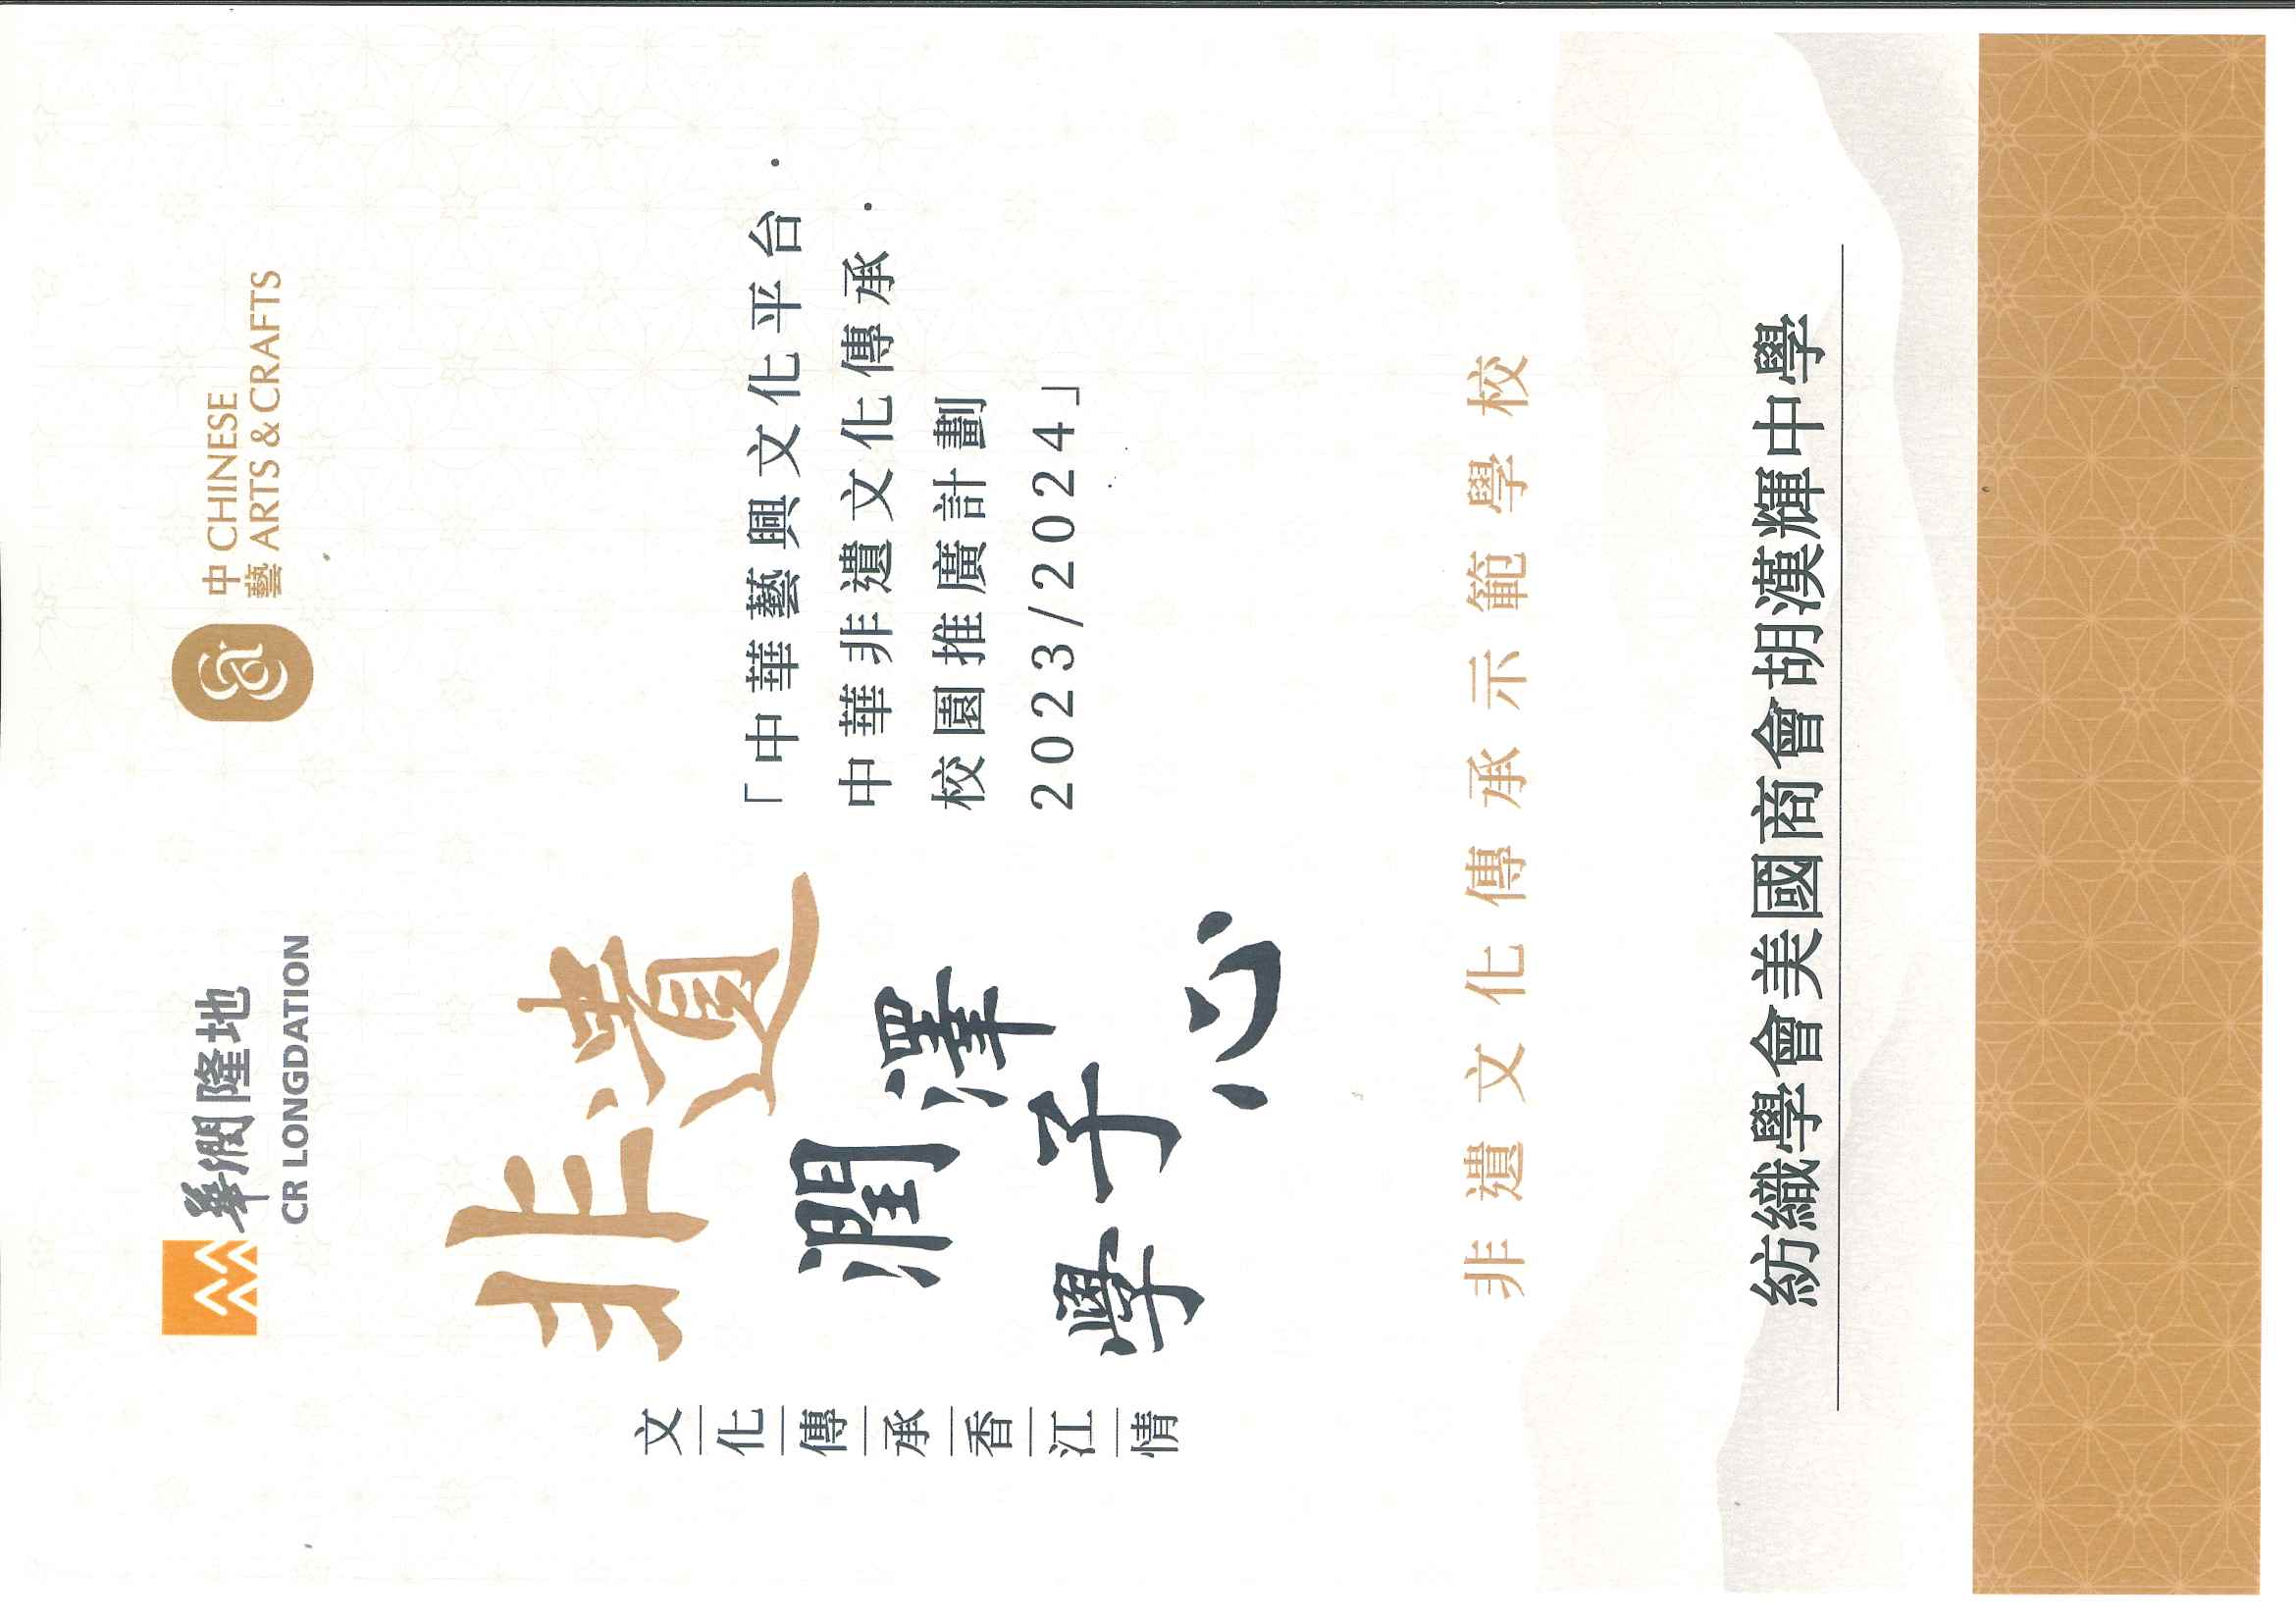 華潤隆地
CR LONGDATION
中藝
CHINESE
ARTS & CRAFTS
文化傳承香江情
非遺
潤澤
學子心
「中華藝興文化平台·
中華非遺文化傳承·
校園推廣計劃
2023/2024」
非遺文化傳承示範學校
紡織學會美國商會胡漢輝中學